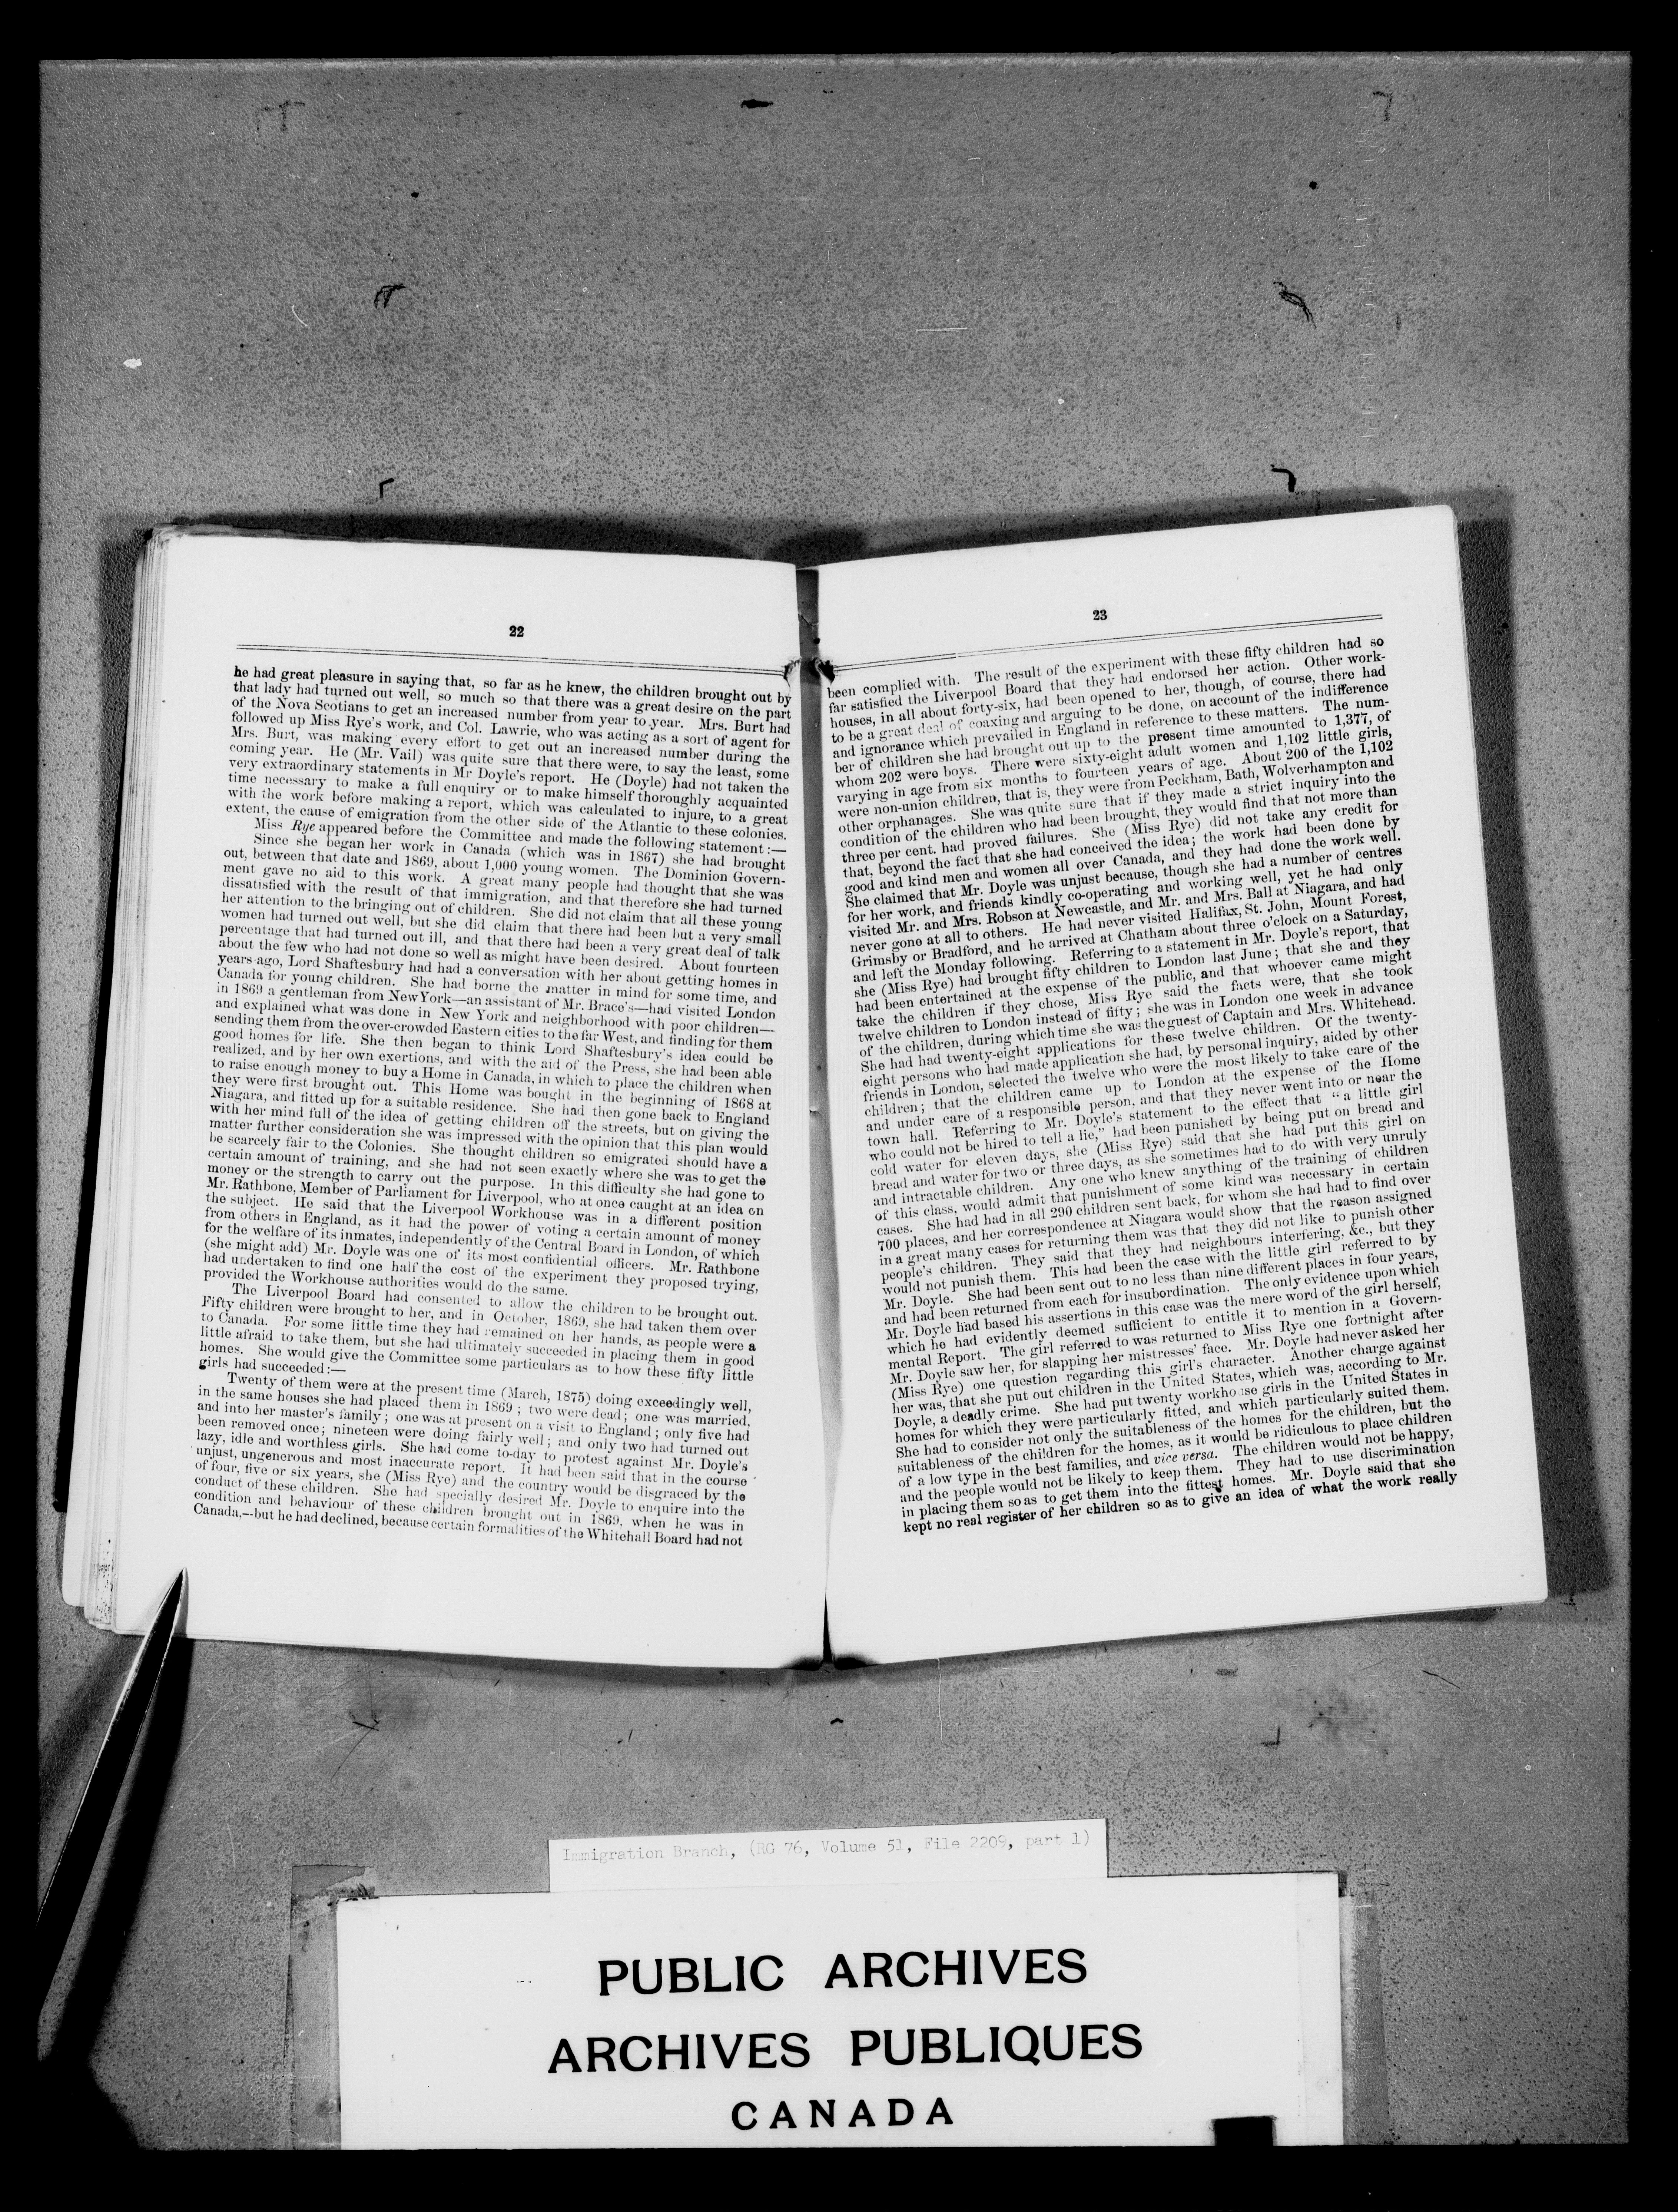 22
he had great pleasure in saying that, so far as he knew, the children brought out by
that lady had turned out well, so much so that there was a great desire on the part
of the Nova Scotians to get an increased number from year to year. Mrs. Burt had
followed up Miss Rye's work, and Col. Lawrie, who was acting as a sort of agent for
Mrs. Burt, was making every effort to get out an increased number during the
coming year. He (Mr. Vail) was quite sure that there were, to say the least, some
very extraordinary statements in Mr Doyle's report. He (Doyle) had not taken the
time necessary to make a full enquiry or to make himself thoroughly acquainted
with the work before making a report, which was calculated to injure, to a great
extent, the cause of emigration from the other side of the Atlantic to these colonies.
Miss Rye appeared before the Committee and made the following statement:—
Since she began her work in Canada (which was in 1867) she had brought
out, between that date and 1869, about 1,000 young women. The Dominion Govern-
ment gave no aid to this work. A great many people had thought that she was
dissatisfied with the result of that immigration, and that therefore she had turned
her attention to the bringing out of children. She did not claim that all these young
women had turned out well, but she did claim that there had been but a very small
percentage that had turned out ill, and that there had been a very great deal of talk
about the few who had not done so well as might have been desired. About fourteen
years ago, Lord Shaftesbury had had a conversation with her about getting homes in
Canada for young children. She had borne the matter in mind for some time, and
in 1869 a gentleman from NewYork—an assistant of Mr. Brace's—had visited London
and explained what was done in New York and neighborhood with poor children—
sending them from the over-crowded Eastern cities to the far West, and finding for them
good homes for life. She then began to think Lord Shaftesbury's idea could be
realized, and by her own exertions, and with the aid of the Press, she had been able
to raise enough money to buy a Home in Canada, in which to place the children when
they were first brought out. This Home was bought in the beginning of 1868 at
Niagara, and fitted up for a suitable residence. She had then gone back to England
with her mind full of the idea of getting children off the streets, but on giving the
matter further consideration she was impressed with the opinion that this plan would
be scarcely fair to the Colonies. She thought children so emigrated should have a
certain amount of training, and she had not seen exactly where she was to get the
money or the strength to carry out the purpose. In this difficulty she had gone to
Mr. Rathbone, Member of Parliament for Liverpool, who at once caught at an idea on
the subject. He said that the Liverpool Workhouse was in a different position
from others in England, as it had the power of voting a certain amount of money
for the welfare of its inmates, independently of the Central Board in London, of which
(she might add) Mr. Doyle was one of its most confidential officers. Mr. Rathbone
had undertaken to find one half the cost of the experiment they proposed trying,
provided the Workhouse authorities would do the same.
The Liverpool Board had consented to allow the children to be brought out.
Fifty children were brought to her, and in October, 1869, she had taken them over
to Canada. For some little time they had remained on her hands, as people were a
little afraid to take them, but she had ultimately succeeded in placing them in good
homes. She would give the Committee some particulars as to how these fifty little
girls had succeeded:—
Twenty of them were at the present time (March, 1875) doing exceedingly well,
in the same houses she had placed them in 1869; two were dead; one was married,
and into her master's family; one was at present on a visit to England; only five had
been removed once; nineteen were doing fairly well; and only two had turned out
lazy, idle and worthless girls. She had come to-day to protest against Mr. Doyle's
unjust, ungenerous and most inaccurate report. It had been said that in the course
of four, five or six years, she (Miss Rye) and the country would be disgraced by the
conduct of these children. She had specially desired Mr. Doyle to enquire into the
condition and behaviour of these children brought out in 1869, when he was in
Canada,—but he had declined, because certain formalities of the Whitehall Board had not
23
been complied with. The result of the experiment with these fifty children had so
far satisfied the Liverpool Board that they had endorsed her action. Other work-
houses, in all about forty-six, had been opened to her, though, of course, there had
to be a great deal of coaxing and arguing to be done, on account of the indifference
and ignorance which prevailed in England in reference to these matters. The num-
ber of children she had brought out up to the present time amounted to 1,377, of
whom 202 were boys. There were sixty-eight adult women and 1,102 little girls,
varying in age from six months to fourteen years of age. About 200 of the 1,102
were non-union children, that is, they were from Peckham, Bath, Wolverhampton and
other orphanages. She was quite sure that if they made a strict inquiry into the
condition of the children who had been brought, they would find that not more than
three per cent. had proved failures. She (Miss Rye) did not take any credit for
that, beyond the fact that she had conceived the idea; the work had been done by
good and kind men and women all over Canada, and they had done the work well.
She claimed that Mr. Doyle was unjust because, though she had a number of centres
for her work, and friends kindly co-operating and working well, yet he had only
visited Mr. and Mrs. Robson at Newcastle, and Mr. and Mrs. Ball at Niagara, and had
never gone at all to others. He had never visited Halifax, St. John, Mount Forest,
Grimsby or Bradford, and he arrived at Chatham about three o'clock on a Saturday,
and left the Monday following. Referring to a statement in Mr. Doyle's report, that
she (Miss Rye) had brought fifty children to London last June; that she and they
had been entertained at the expense of the public, and that whoever came might
take the children if they chose, Miss Rye said the facts were, that she took
twelve children to London instead of fifty; she was in London one week in advance
of the children, during which time she was the guest of Captain and Mrs. Whitehead.
She had had twenty-eight applications for these twelve children. Of the twenty-
eight persons who had made application she had, by personal inquiry, aided by other
friends in London, selected the twelve who were the most likely to take care of the
children; that the children came up to London at the expense of the Home
and under care of a responsible person, and that they never went into or near the
town hall. Referring to Mr. Doyle's statement to the effect that "a little girl
who could not be hired to tell a lie," had been punished by being put on bread and
cold water for eleven days, she (Miss Rye) said that she had put this girl on
bread and water for two or three days, as she sometimes had to do with very unruly
and intractable children. Any one who knew anything of the training of children
of this class, would admit that punishment of some kind was necessary in certain
cases. She had had in all 290 children sent back, for whom she had had to find over
700 places, and her correspondence at Niagara would show that the reason assigned
in a great many cases for returning them was that they did not like to punish other
people's children. They said that they had neighbours interfering, &c., but they
would not punish them. This had been the case with the little girl referred to by
Mr. Doyle. She had been sent out to no less than nine different places in four years,
and had been returned from each for insubordination. The only evidence upon which
Mr. Doyle had based his assertions in this case was the mere word of the girl herself,
which he had evidently deemed sufficient to entitle it to mention in a Govern-
mental Report. The girl referred to was returned to Miss Rye one fortnight after
Mr. Doyle saw her, for slapping her mistresses' face. Mr. Doyle had never asked her
(Miss Rye) one question regarding this girl's character. Another charge against
her was, that she put out children in the United States, which was, according to Mr.
Doyle, a deadly crime. She had put twenty workhouse girls in the United States in
homes for which they were particularly fitted, and which particularly suited them.
She had to consider not only the suitableness of the homes for the children, but the
suitableness of the children for the homes, as it would be ridiculous to place children
of a low type in the best families, and vice versa. The children would not be happy,
and the people would not be likely to keep them. They had to use discrimination
in placing them so as to get them into the fittest homes. Mr. Doyle said that she
kept no real register of her children so as to give an idea of what the work really
Immigration Branch, (RG 76, Volume 51, File 2209, part 1)
PUBLIC ARCHIVES
ARCHIVES PUBLIQUES
CANADA